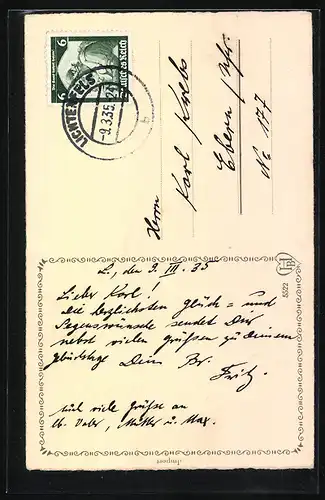 6 Deutsches Reich 6
LICHTENFELS
-9.3.35.
b
Herrn
Karl Krebs
Ebern /Ufr.
No 177
5522
L, den 9. III. 35
Lieber Karl!
die herzlichsten Glück- und
Segenswünsche sendet Dir
nebst vielen Grüßen zu Deinem
Glückstage Dein Br.
Fritz.
Auch viele Grüße an
lb. Vater, Mutter u. Max.